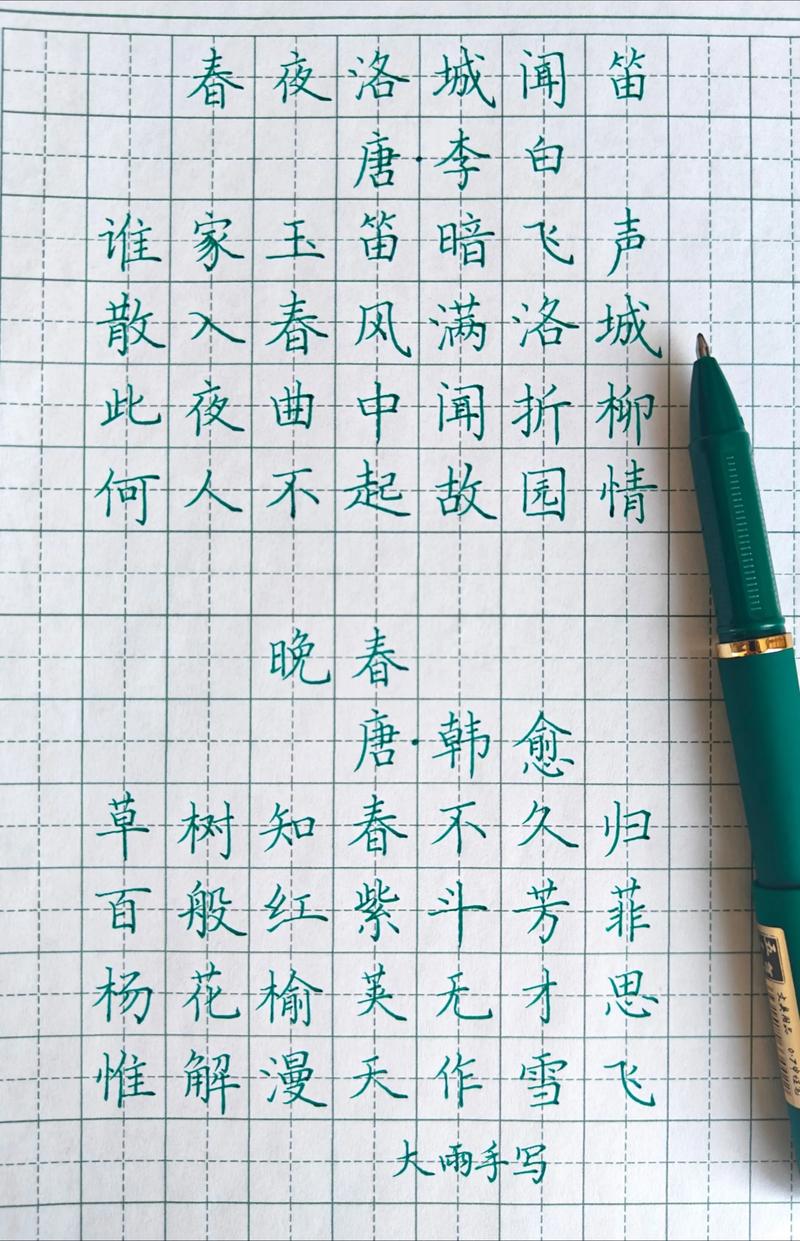 春夜洛城闻笛
唐·李白
谁家玉笛暗飞声
散入春风满洛城
此夜曲中闻折柳
何人不起故园情
晚春
唐·韩愈
草树知春不久归
百般红紫斗芳菲
杨花榆荚无才思
惟解漫天作雪飞
大雨手写